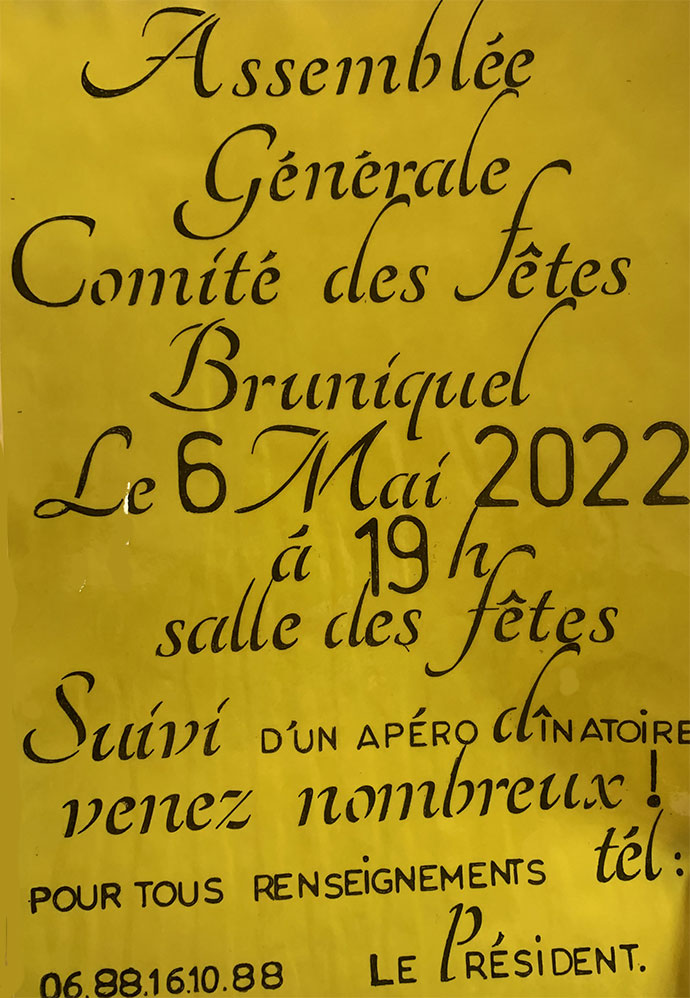 Assemblée
Générale
Comité des fêtes
Bruniquel
Le 6 Mai 2022
á 19 h
salle des fêtes
Suivi D'UN APÉRO dÎNATOIRE
venez nombreux !
POUR TOUS RENSEIGNEMENTS tél :
06.88.16.10.88 LE PRÉSIDENT.